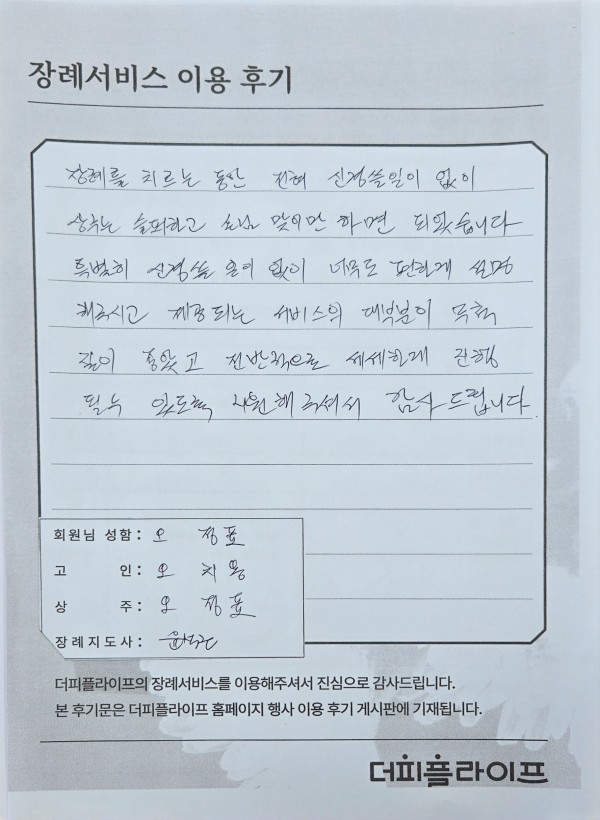 장례서비스 이용 후기
장례를 치르는 동안 전혀 신경쓸일이 없이
상주는 슬퍼하고 손님 맞이만 하면 되었습니다
특별히 신경쓸 일이 없이 너무도 편하게 설명
해주시고 제공되는 서비스의 대부분이 무척
질이 좋았고 전반적으로 세세하게 진행
될수 있도록 지원해주셔서 감사드립니다.
회원님 성함: 오 정표
고 인: 오 치용
상 주: 오 정표
장례지도사:
더피플라이프의 장례서비스를 이용해주셔서 진심으로 감사드립니다.
본 후기문은 더피플라이프 홈페이지 행사 이용 후기 게시판에 기재됩니다.
더피플라이프